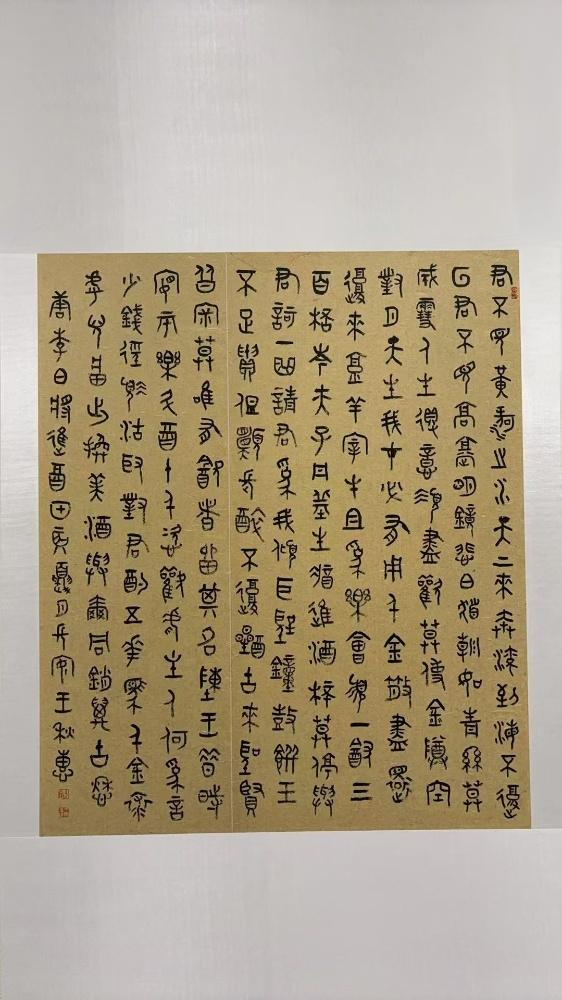 君不見黃河之水天上來奔流到海不復
回君不見高堂明鏡悲白髮朝如青絲莫
成雪人生得意須盡歡莫使金樽空
對月天生我才必有用千金散盡還
復來烹羊宰牛且爲樂會須一飲三
百杯岑夫子丹丘生將進酒杯莫停與
君歌一曲請君爲我傾耳聽鐘鼓饌玉
不足貴但願長醉不復醒古來聖賢
皆寂寞唯有飲者留其名陳王昔時
宴平樂斗酒十千恣歡謔主人何爲言
少錢徑須沽取對君酌五花馬千金裘
呼兒將出換美酒與爾同銷萬古愁
唐李白將進酒夏月長安王秋惠